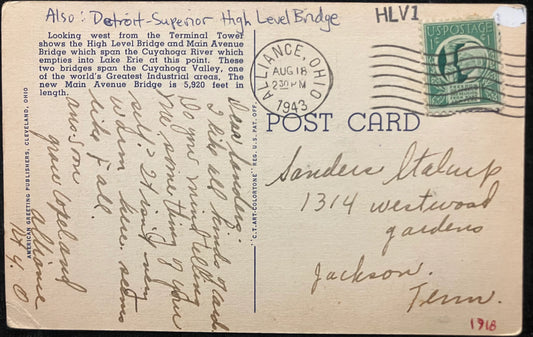 Also: Detroit-Superior High Level Bridge
HLV1
Looking west from the Terminal Tower
shows the High Level Bridge and Main Avenue
Bridge which span the Cuyahoga River which
empties into Lake Erie at this point. These
two bridges span the Cuyahoga Valley, one
of the world's Greatest Industrial areas. The
new Main Avenue Bridge is 5,920 feet in
length.
ALLIANCE, OHIO
AUG 18
2 30 PM
1943
U.S. POSTAGE
POST CARD
AMERICAN GREETING PUBLISHERS, CLEVELAND, OHIO
"C.T. ART-COLORTONE" REG. U.S. PAT. OFF.
Dear Sanders:
I like all kinds of card.
Do you mind telling
me some thing of your
self? It isn't very
warm here. seems
like Fall.
ans. soon
grace Copeland
Alliance
O
Sanders Stalcup
1314 westwood
gardens
Jackson.
Tenn.
1918